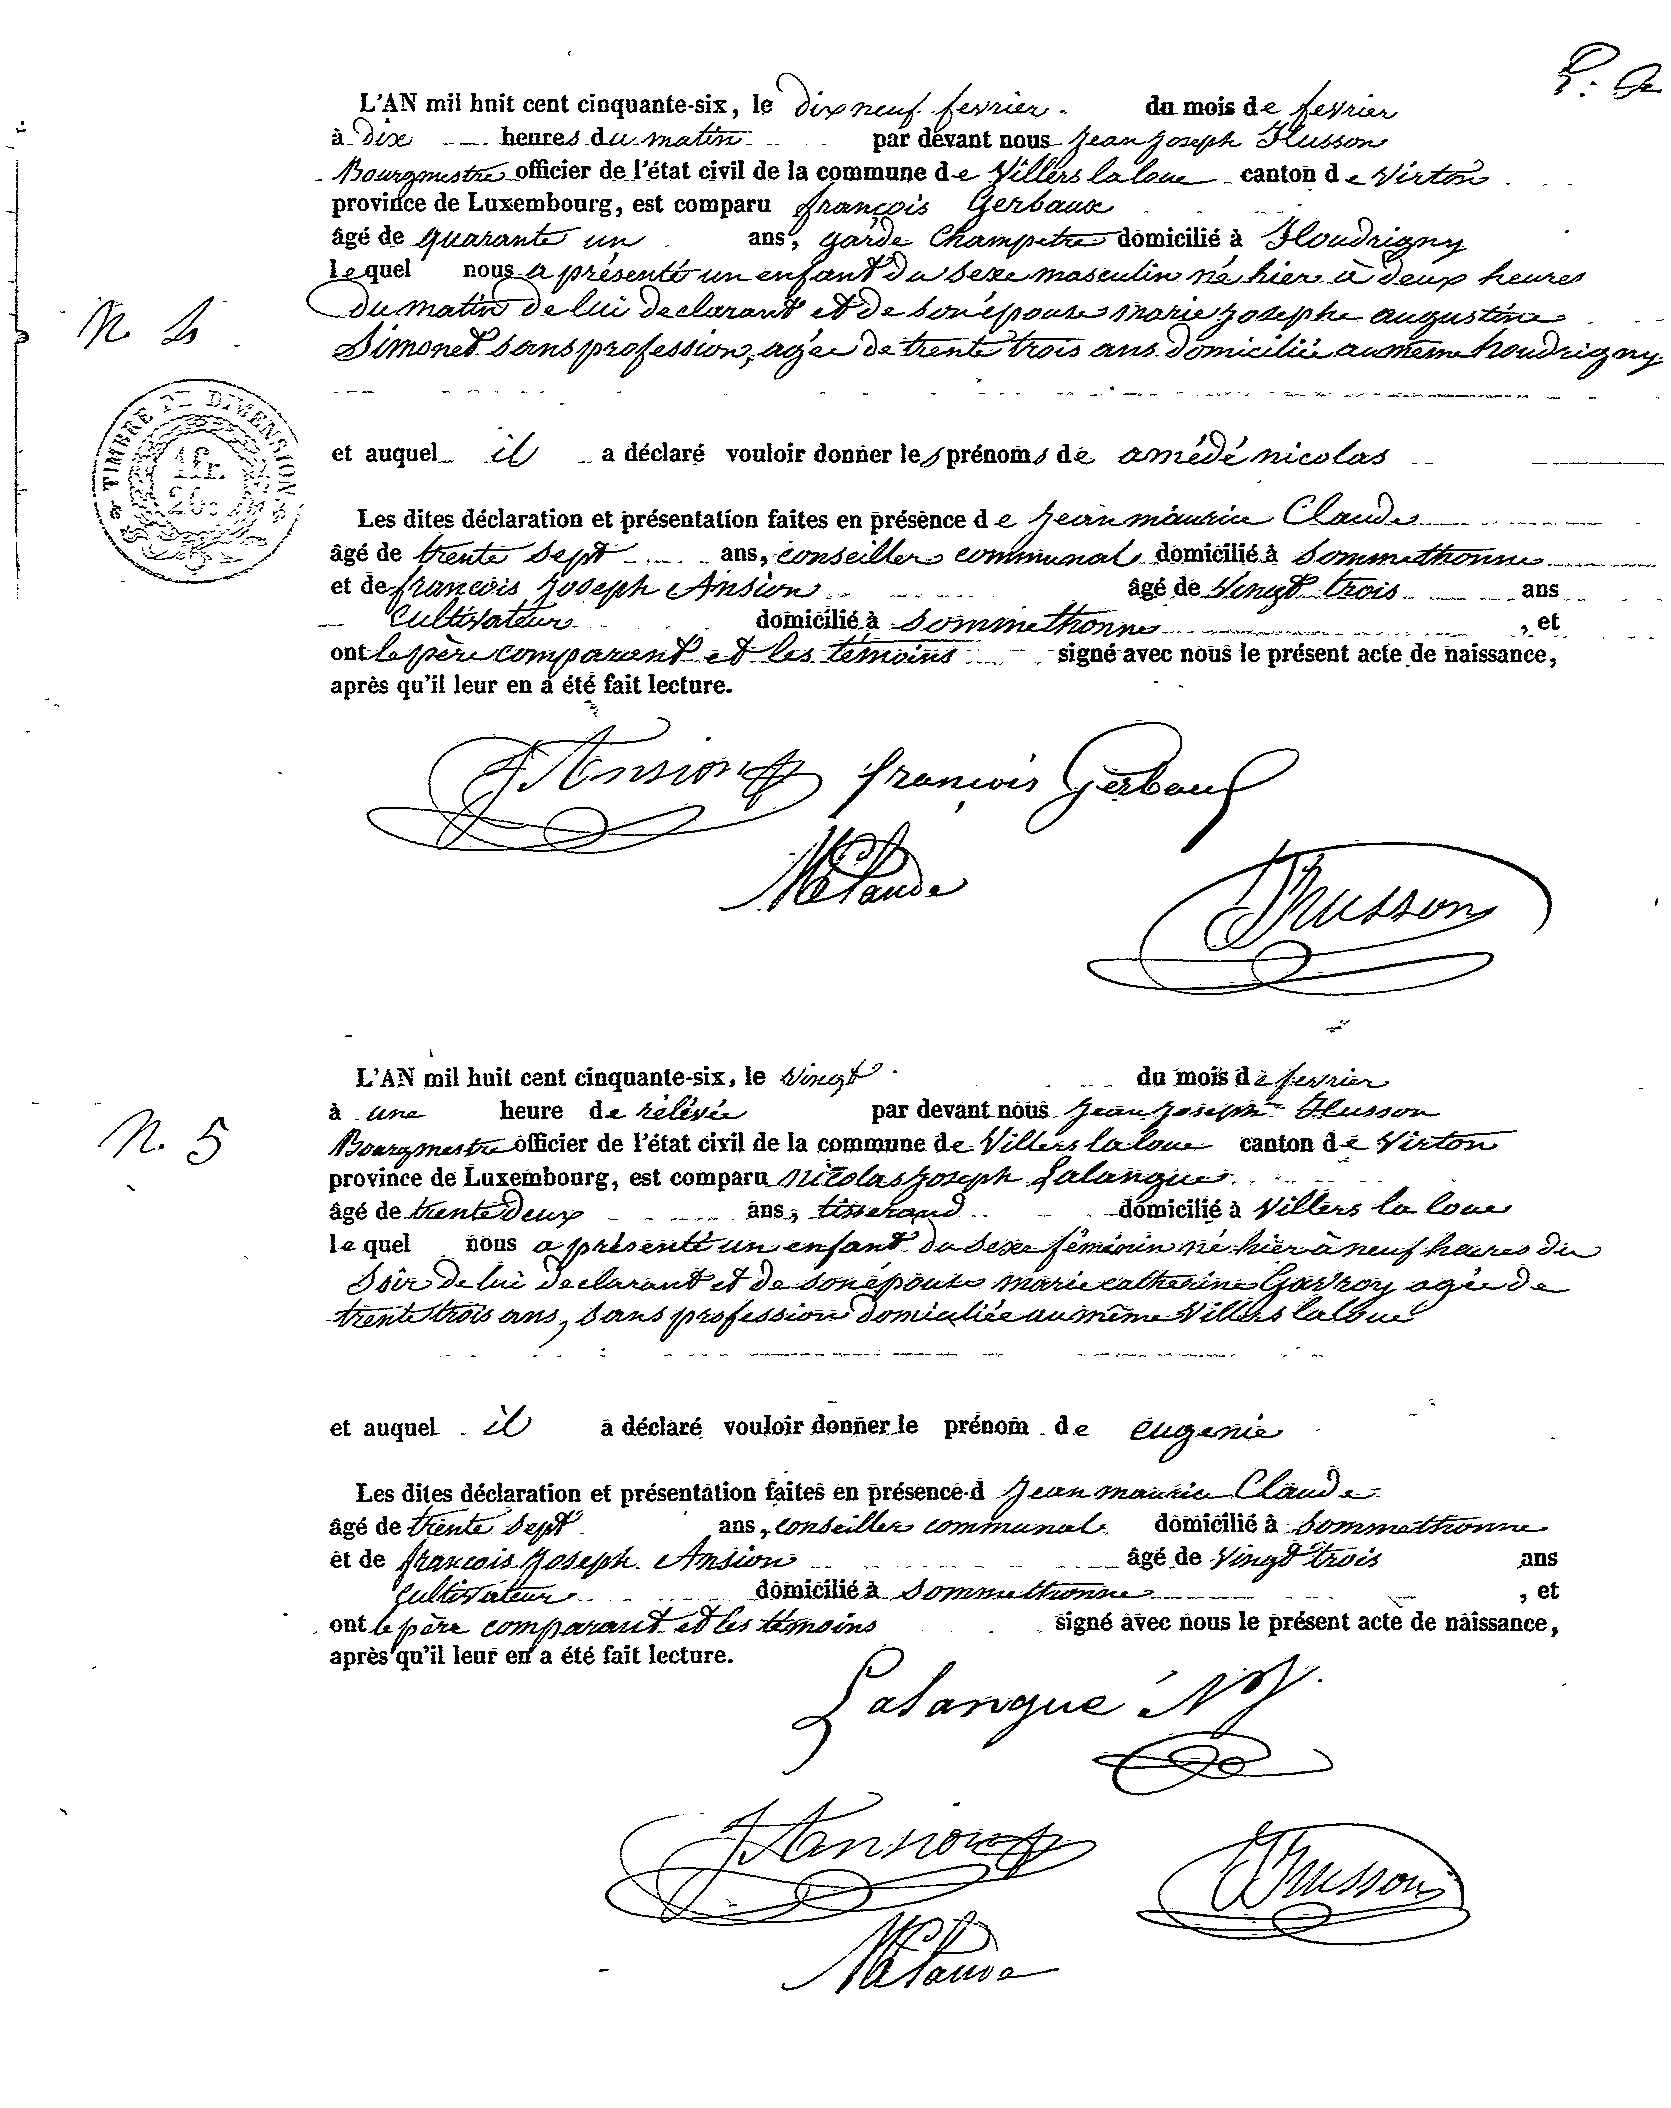 P. G
L'AN mil huit cent cinquante-six, le dix neuf fevrier. du mois de fevrier
à dix heures du matin par devant nous Jean Joseph Husson
Bourgmestre officier de l'état civil de la commune de Villers la loue canton de Virton
province de Luxembourg, est comparu françois Gerbaux
âgé de quarante un ans, garde Champetre domicilié à Houdrigny
lequel nous a présenté un enfant du sexe masculin né hier à deux heures
N. 4 du matin de lui declarant et de son épouse marie josephe augustine
Simonet sans profession, agée de trente trois ans domiciliée au même houdrigny
TIMBRE DE DIMENSION
1 fr.
20c
et auquel il a déclaré vouloir donner les prénoms de amédé nicolas
Les dites déclaration et présentation faites en présence de Jean maurice Claude
âgé de trente sept ans, conseiller communal domicilié à Sommethonne
et de francois Joseph Ansion âgé de vingt trois ans
cultivateur domicilié à Sommethonne, et
ont le père comparant et les témoins signé avec nous le présent acte de naissance,
après qu'il leur en a été fait lecture.
J Ansion françois Gerbaux
M Claude
JJ husson
L'AN mil huit cent cinquante-six, le vingt du mois de fevrier
à une heure de rélévée par devant nous Jean Joseph Husson
N. 5 Bourgmestre officier de l'état civil de la commune de Villers la loue canton de Virton
province de Luxembourg, est comparu nicolas joseph Lalangue
âgé de trente deux ans, tisserand domicilié à Villers la loue
lequel nous a présenté un enfant du sexe féminin né hier à neuf heures du
Soir de lui declarant et de son épouse marie catherine Gavroy agée de
trente trois ans, sans profession domiciliée au même Villers la loue
et auquel il a déclaré vouloir donner le prénom de eugenie
Les dites déclaration et présentation faites en présence d Jean maurice Claude
âgé de trente sept ans, conseiller communal domicilié à Sommethonne
et de francois Joseph Ansion âgé de vingt trois ans
cultivateur domicilié à Sommethonne, et
ont le père comparant et les témoins signé avec nous le présent acte de naissance,
après qu'il leur en a été fait lecture.
Lalangue N J.
J Ansion
JJ husson
M Claude